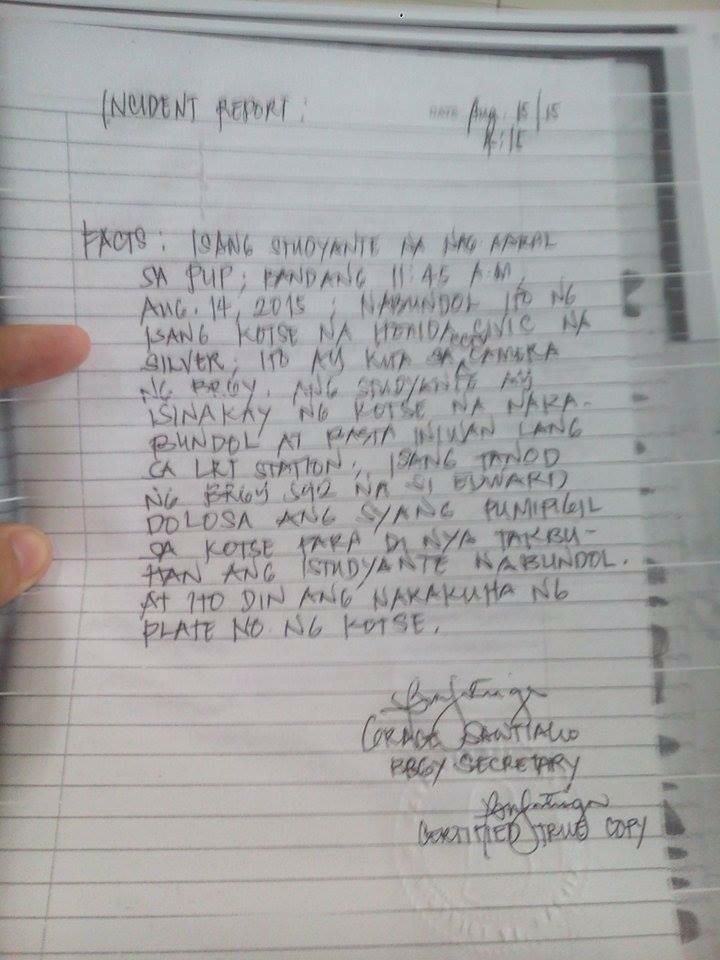 INCIDENT REPORT : DATE Aug. 15/15
4:15
FACTS : ISANG STUDYANTE NA NAG AARAL
SA PUP ; BANDANG 11:45 A.M.
AUG. 14, 2015 ; NABUNDOL ITO NG
ISANG KOTSE NA HONDA CIVIC NA
SILVER ; ITO AY KUHA SA CCTV CAMERA
NG BRGY. ANG STUDYANTE AY
ISINAKAY NG KOTSE NA NAKA-
BUNDOL AT BASTA INIWAN LANG
SA LRT STATION ; ISANG TANOD
NG BRGY 592 NA SI EDWARD
DOLOSA ANG SYANG PUMIPIGIL
SA KOTSE PARA DI NYA TAKBU-
HAN ANG ISTUDYANTE NABUNDOL.
AT ITO DIN ANG NAKAKUHA NG
PLATE NO. NG KOTSE.
GRACE SANTIAGO
BRGY SECRETARY
CERTIFIED TRUE COPY